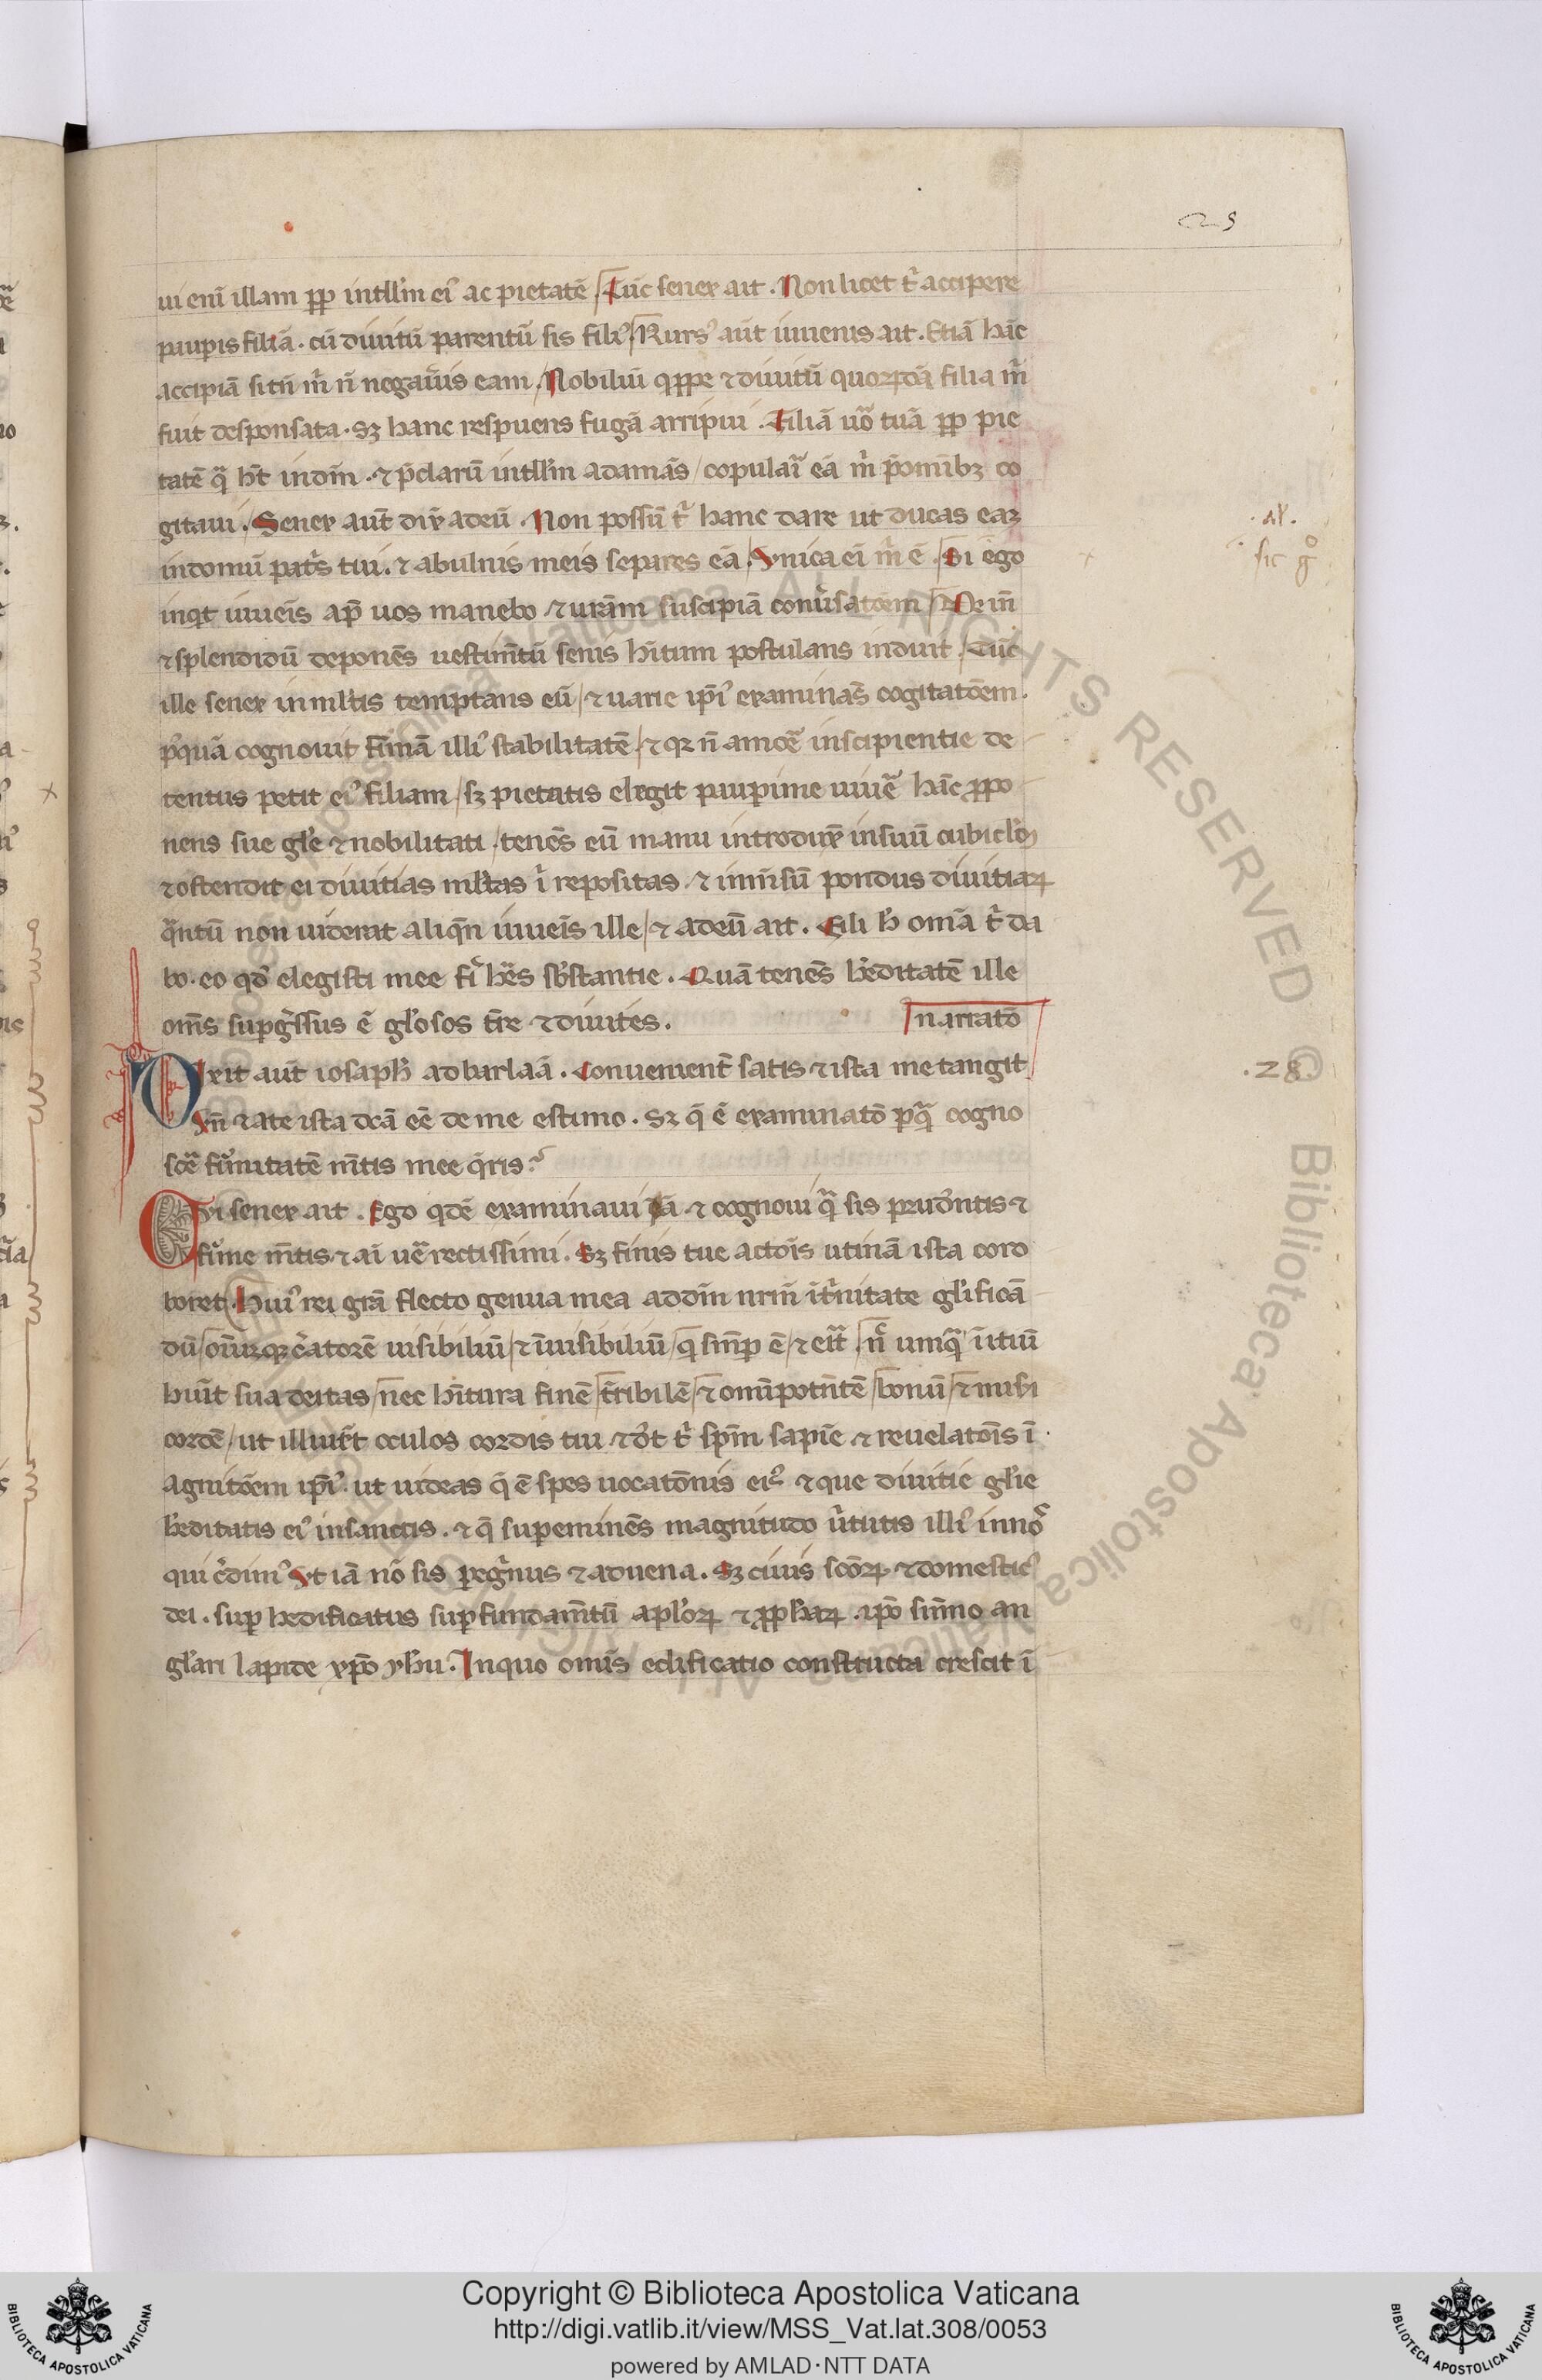 25
ui eni͂ illam ꝓp intll'm ei᷒ ac pietatē. Tūc senex ait. Non licet t̉ accipere
paupis filiā. cū diuitū parentū sis fili᷒. Rurs᷒ aūt iuuenis ait. Etiā hāc
accipiā si tu m̉ n̄ negau̓is eam. Nobiliū qꝑpe ⁊ diuitū quoꝝdā filia m̉
fuit desponsata. sꝫ hanc respuens fugā arripui. Filiā uo̓ tuā ꝓp pie
tatē q̄ ht̄ in dm̄. ⁊ p̄clarū intll'm adamās / copulaı̓ eā m̉ p̄ omībꝫ co
gitaui. Senex aūt dix̄ ad eū. Non possū t̉ hanc dare ut ducas eaꝫ
in domū pat̓s tui. ⁊ ab ulnis meis separes eā. Vnica ei͂ m̉ ē. Si ego
inqͥt iuueīs ap̄ uos manebo ⁊ urām suscipiā conu̓satōem
⁊ splendidū deponēs uestim̄tū senis hitum postulans induit. Tūc
ille senex in ml'tis temptans eū / ⁊ uarie ip̄i᷒ examinās cogitatōem.
p᷒quā cognouit firmā illi᷒ stabilitatē / ⁊ qꝛ n̄ amoē̓ insipientie de
tentus petit ei᷒ filiam / sꝫ pietatis elegit paupime uiuē̓ hāc ꝓpo
nens sue gl'e ⁊ nobilitati / tenēs eū manu introdux̄ in suū cubicl'ꝫ
⁊ ostendit ei diuitias ml'tas ı̓ repositas. ⁊ īmēsū pondus diuitiaꝝ
q̄ntū non uiderat aliqn̄ iuueīs ille / ⁊ ad eū ait. Fili h̄ omīa t̉ da
bo. eo qd̄ elegisti mee fı̓ hēs sb'stantie. Quā tenēs h'editatē ille
om̄s supg̓ssus ē gl'osos t̄re ⁊ diuites.
narratō
Dixit aūt iosaph̄ ad barlaā. Conuenient̄ satis ⁊ ista me tangit
Vn̄ ⁊ a te ista dc̄ā eē de me estimo. Sꝫ q̄ ē examinatō p qͣ cogno
scē̓ firmitatē m̄tis mee q̄ris?
Cui senex ait. Ego qͥdē examinaui iā ⁊ cognoui qͣ sis prudētis ⁊
firme m̄tis ⁊ ai͂ uē̓ rectissimi. Sꝫ finis tue actōis utinā ista coro
boret. Hui᷒ rei grā flecto genua mea ad dm̄ nrm̄ ī t̓nitate gl'ificā
dū / oīuꝫqꝫ c̓atorē uisibiliū / ⁊ īuisibiliū / qͥ semp ē / ⁊ erit / n̄ umqͣ initiū
huīt sua deitas / nec hītura finē / t̄ribilē / ⁊ omīpotētē / bonū / ⁊ misi
cordē / ut illuīet oculos cordis tui ⁊ det t̉ spm̄ sapīe ⁊ reuelatōis ī
agnitōem ip̄i᷒. ut uideas q̄ ē spes uocatōnis ei᷒ ⁊ que diuitie gl'ie
h'editatis ei᷒ in sanctis. ⁊ q̄ supeminēs magnitudo u̓tutis illi᷒ in no᷒
qui c̓dim᷒. Vt iā nō sis peg̓nus ⁊ aduena. Sꝫ ciuis scōꝝ ⁊ domestic᷒
dei. sup hedificatus sup fundam̄tū aplōꝝ ⁊ ꝓphaꝝ. ipō sūmo an
gl'ari lapide xpō yhu. In quo omīs edificatio constructa crescit ī
.al.
sic g°
.28.
Copyright © Biblioteca Apostolica Vaticana
http://digi.vatlib.it/view/MSS_Vat.lat.308/0053
powered by AMLAD·NTT DATA
BIBLIOTECA APOSTOLICA VATICANA
BIBLIOTECA APOSTOLICA VATICANA